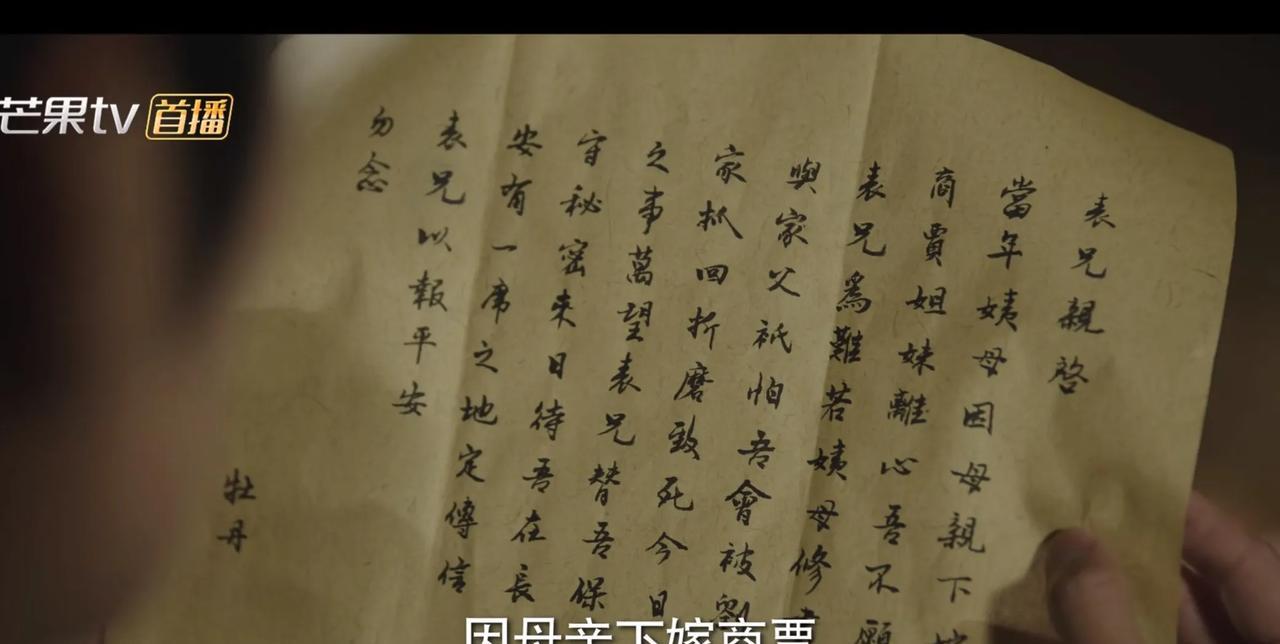 芒果tv 首播
表兄親啓
當年姨母因母親下嫁
商賈姐妹離心吾不願
表兄爲難若姨母修書
與家父祇怕吾會被劉
家抓回折磨致死今日
之事萬望表兄替吾保
守秘密来日待吾在長
安有一席之地定傳信
表兄以報平安
勿念
牡丹
因母亲下嫁商贾